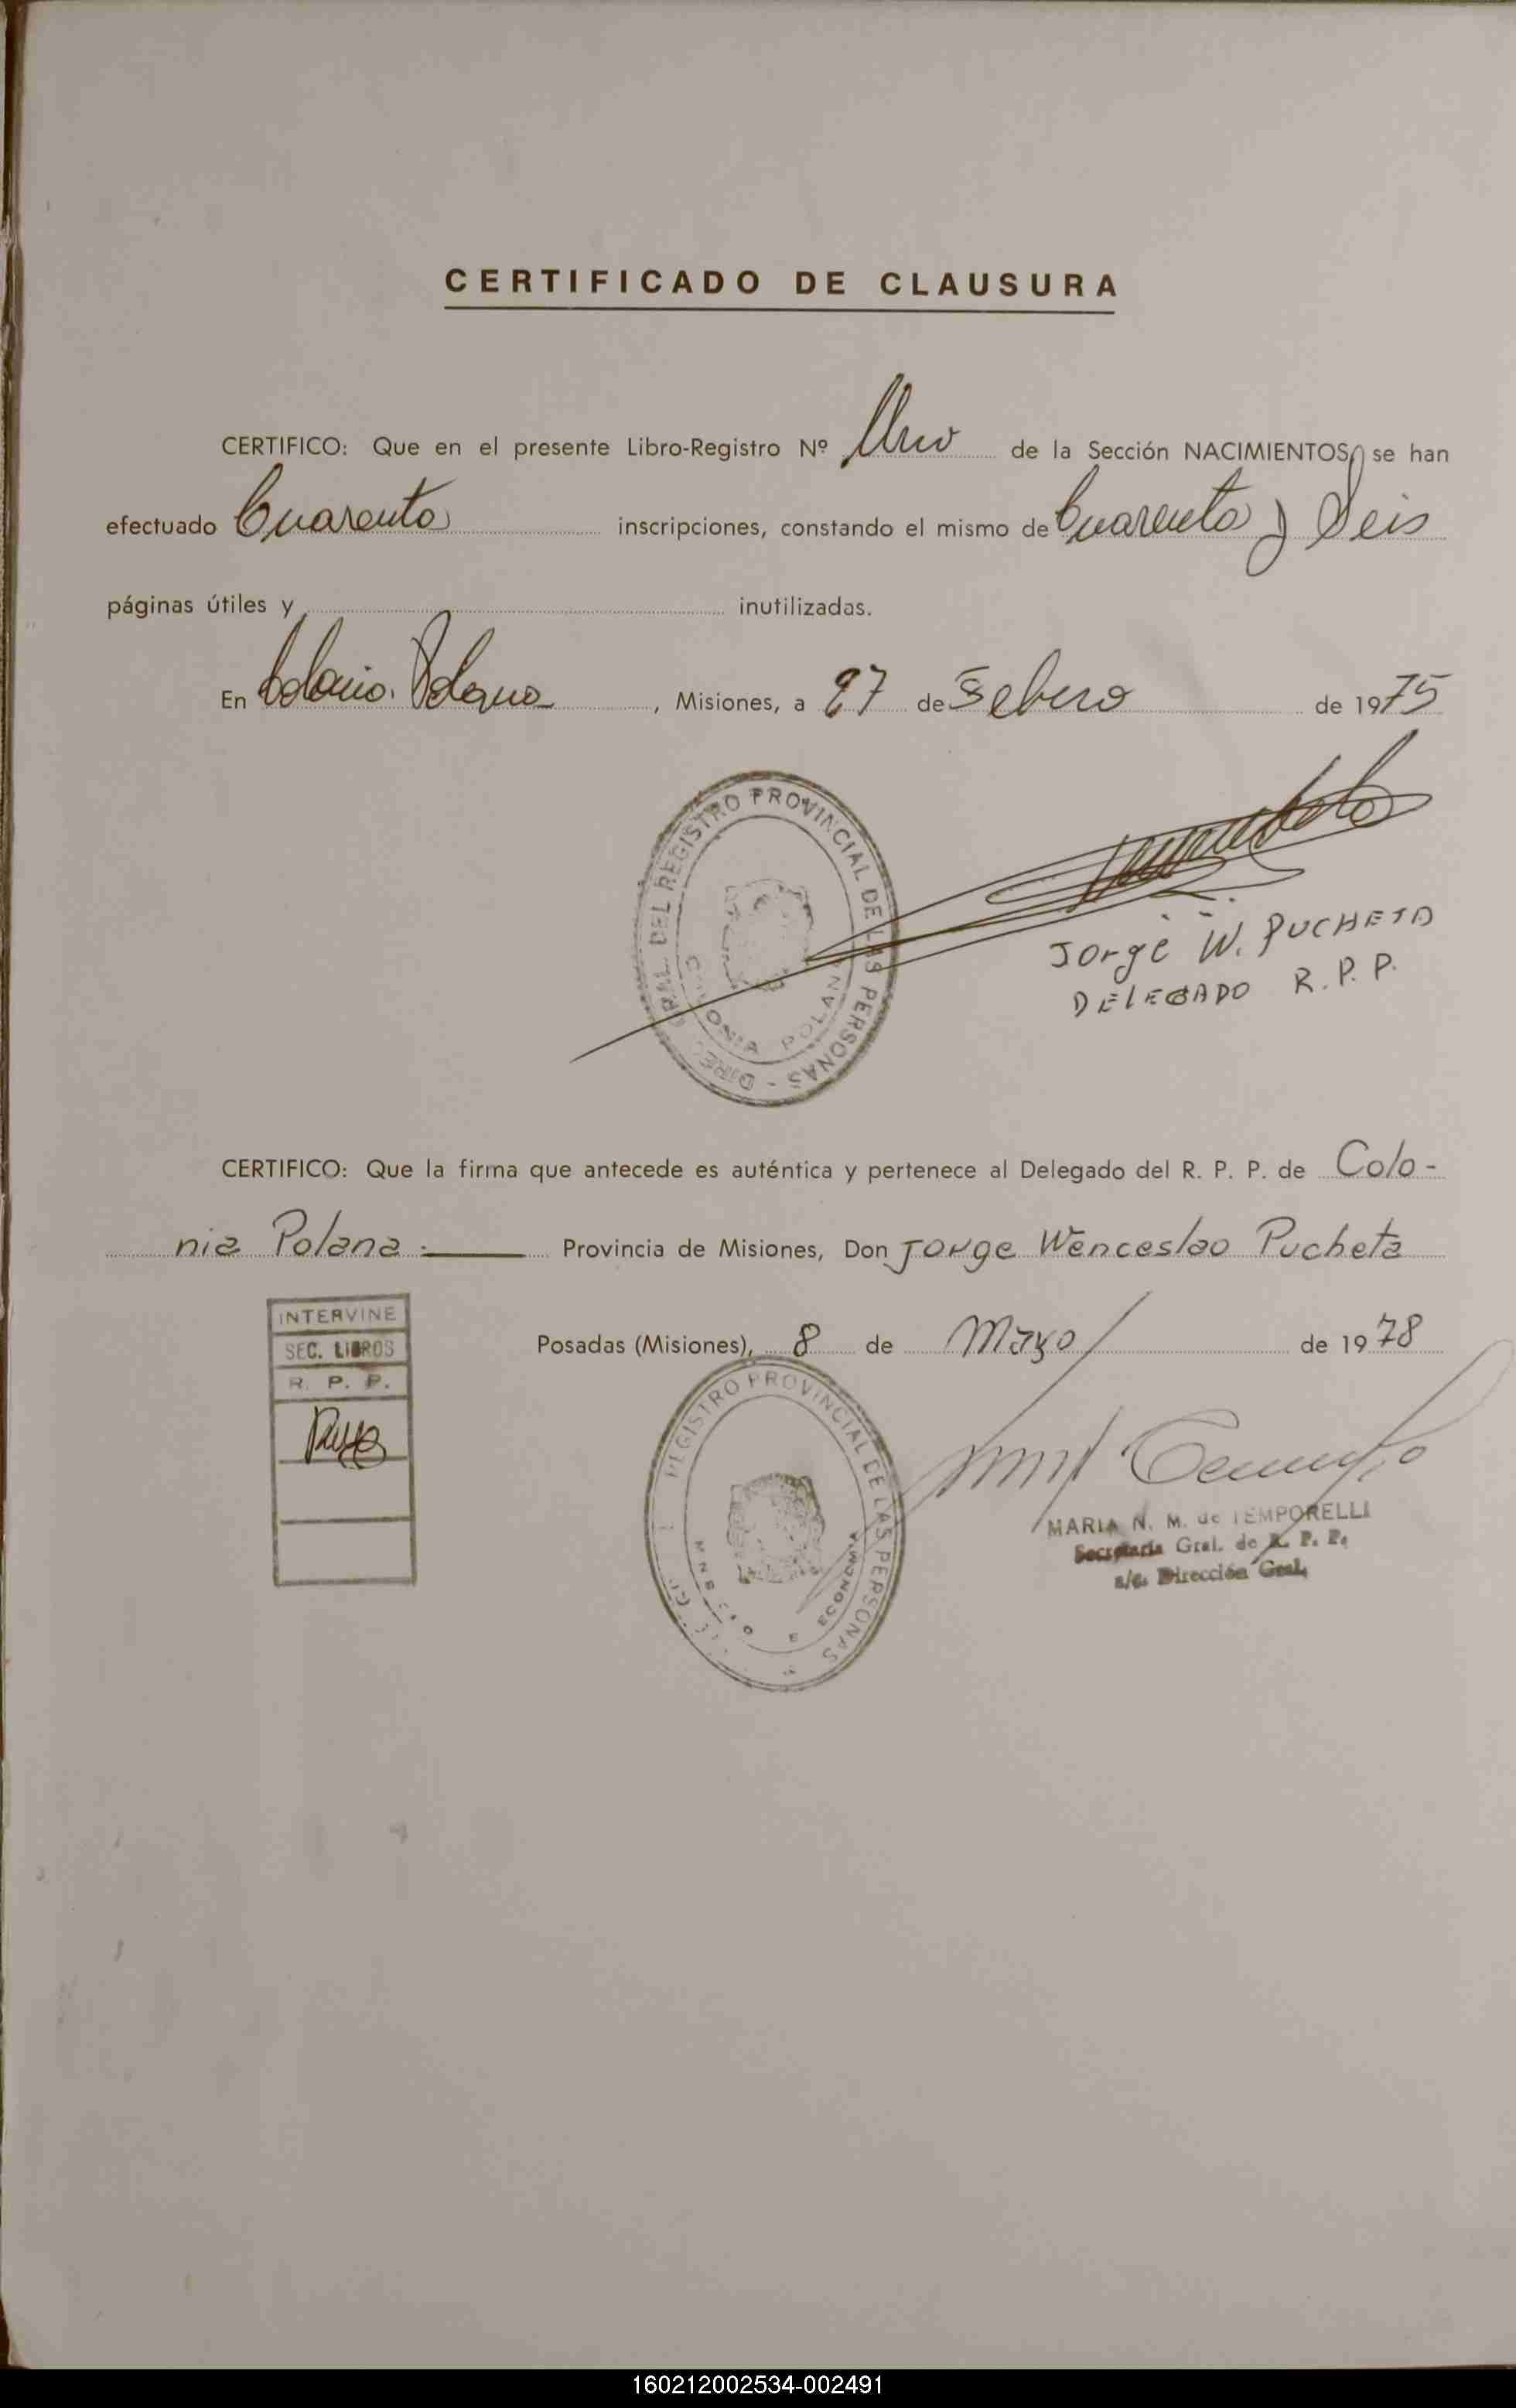 CERTIFICADO DE CLAUSURA
CERTIFICO: Que en el presente Libro-Registro Nº Uno de la Sección NACIMIENTOS, se han
efectuado Cuarenta inscripciones, constando el mismo de Cuarenta y Seis
páginas útiles y inutilizadas.
En Colonia Polana, Misiones, a 27 de Febero de 1975
DIREC. GRAL. DEL REGISTRO PROVINCIAL DE LAS PERSONAS -
COLONIA POLANA
Jorge W. PUCHETA
DELEGADO R.P.P.
CERTIFICO: Que la firma que antecede es auténtica y pertenece al Delegado del R. P. P. de Colo-
nia Polana.- Provincia de Misiones, Don Jorge Wenceslao Pucheta
INTERVINE
SEC. LIBROS
R. P. P.
Posadas (Misiones), 8 de Mayo de 1978
REGISTRO PROVINCIAL DE LAS PERSONAS
ECONOMIA
MARIA N. M. de TEMPORELLI
Secretaria Gral. de R. P. P.
a/c. Dirección Gral.
160212002534-002491